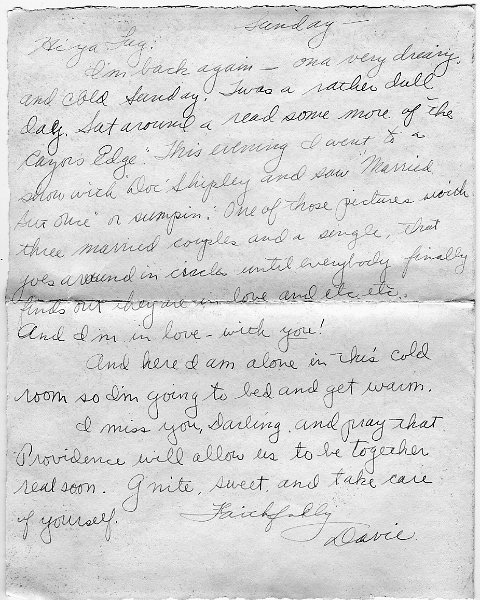 Sunday —
Hi ya Lug:
I'm back again — on a very dreary,
and cold Sunday. Twas a rather dull
day. Sat around a read some more of "the
Razors Edge". This evening I went to a
show with "Doc" Shipley and saw "Married
But Once" or sumpin'. One of those pictures with
three married couples and a single, that
goes around in circles until everybody finally
finds out they are in love and etc etc.
And I'm in love - with you!
And here I am alone in this cold
room so I'm going to bed and get warm.
I miss you, Darling, and pray that
Providence will allow us to be together
real soon. G'nite, sweet, and take care
of yourself.
Faithfully
Davie